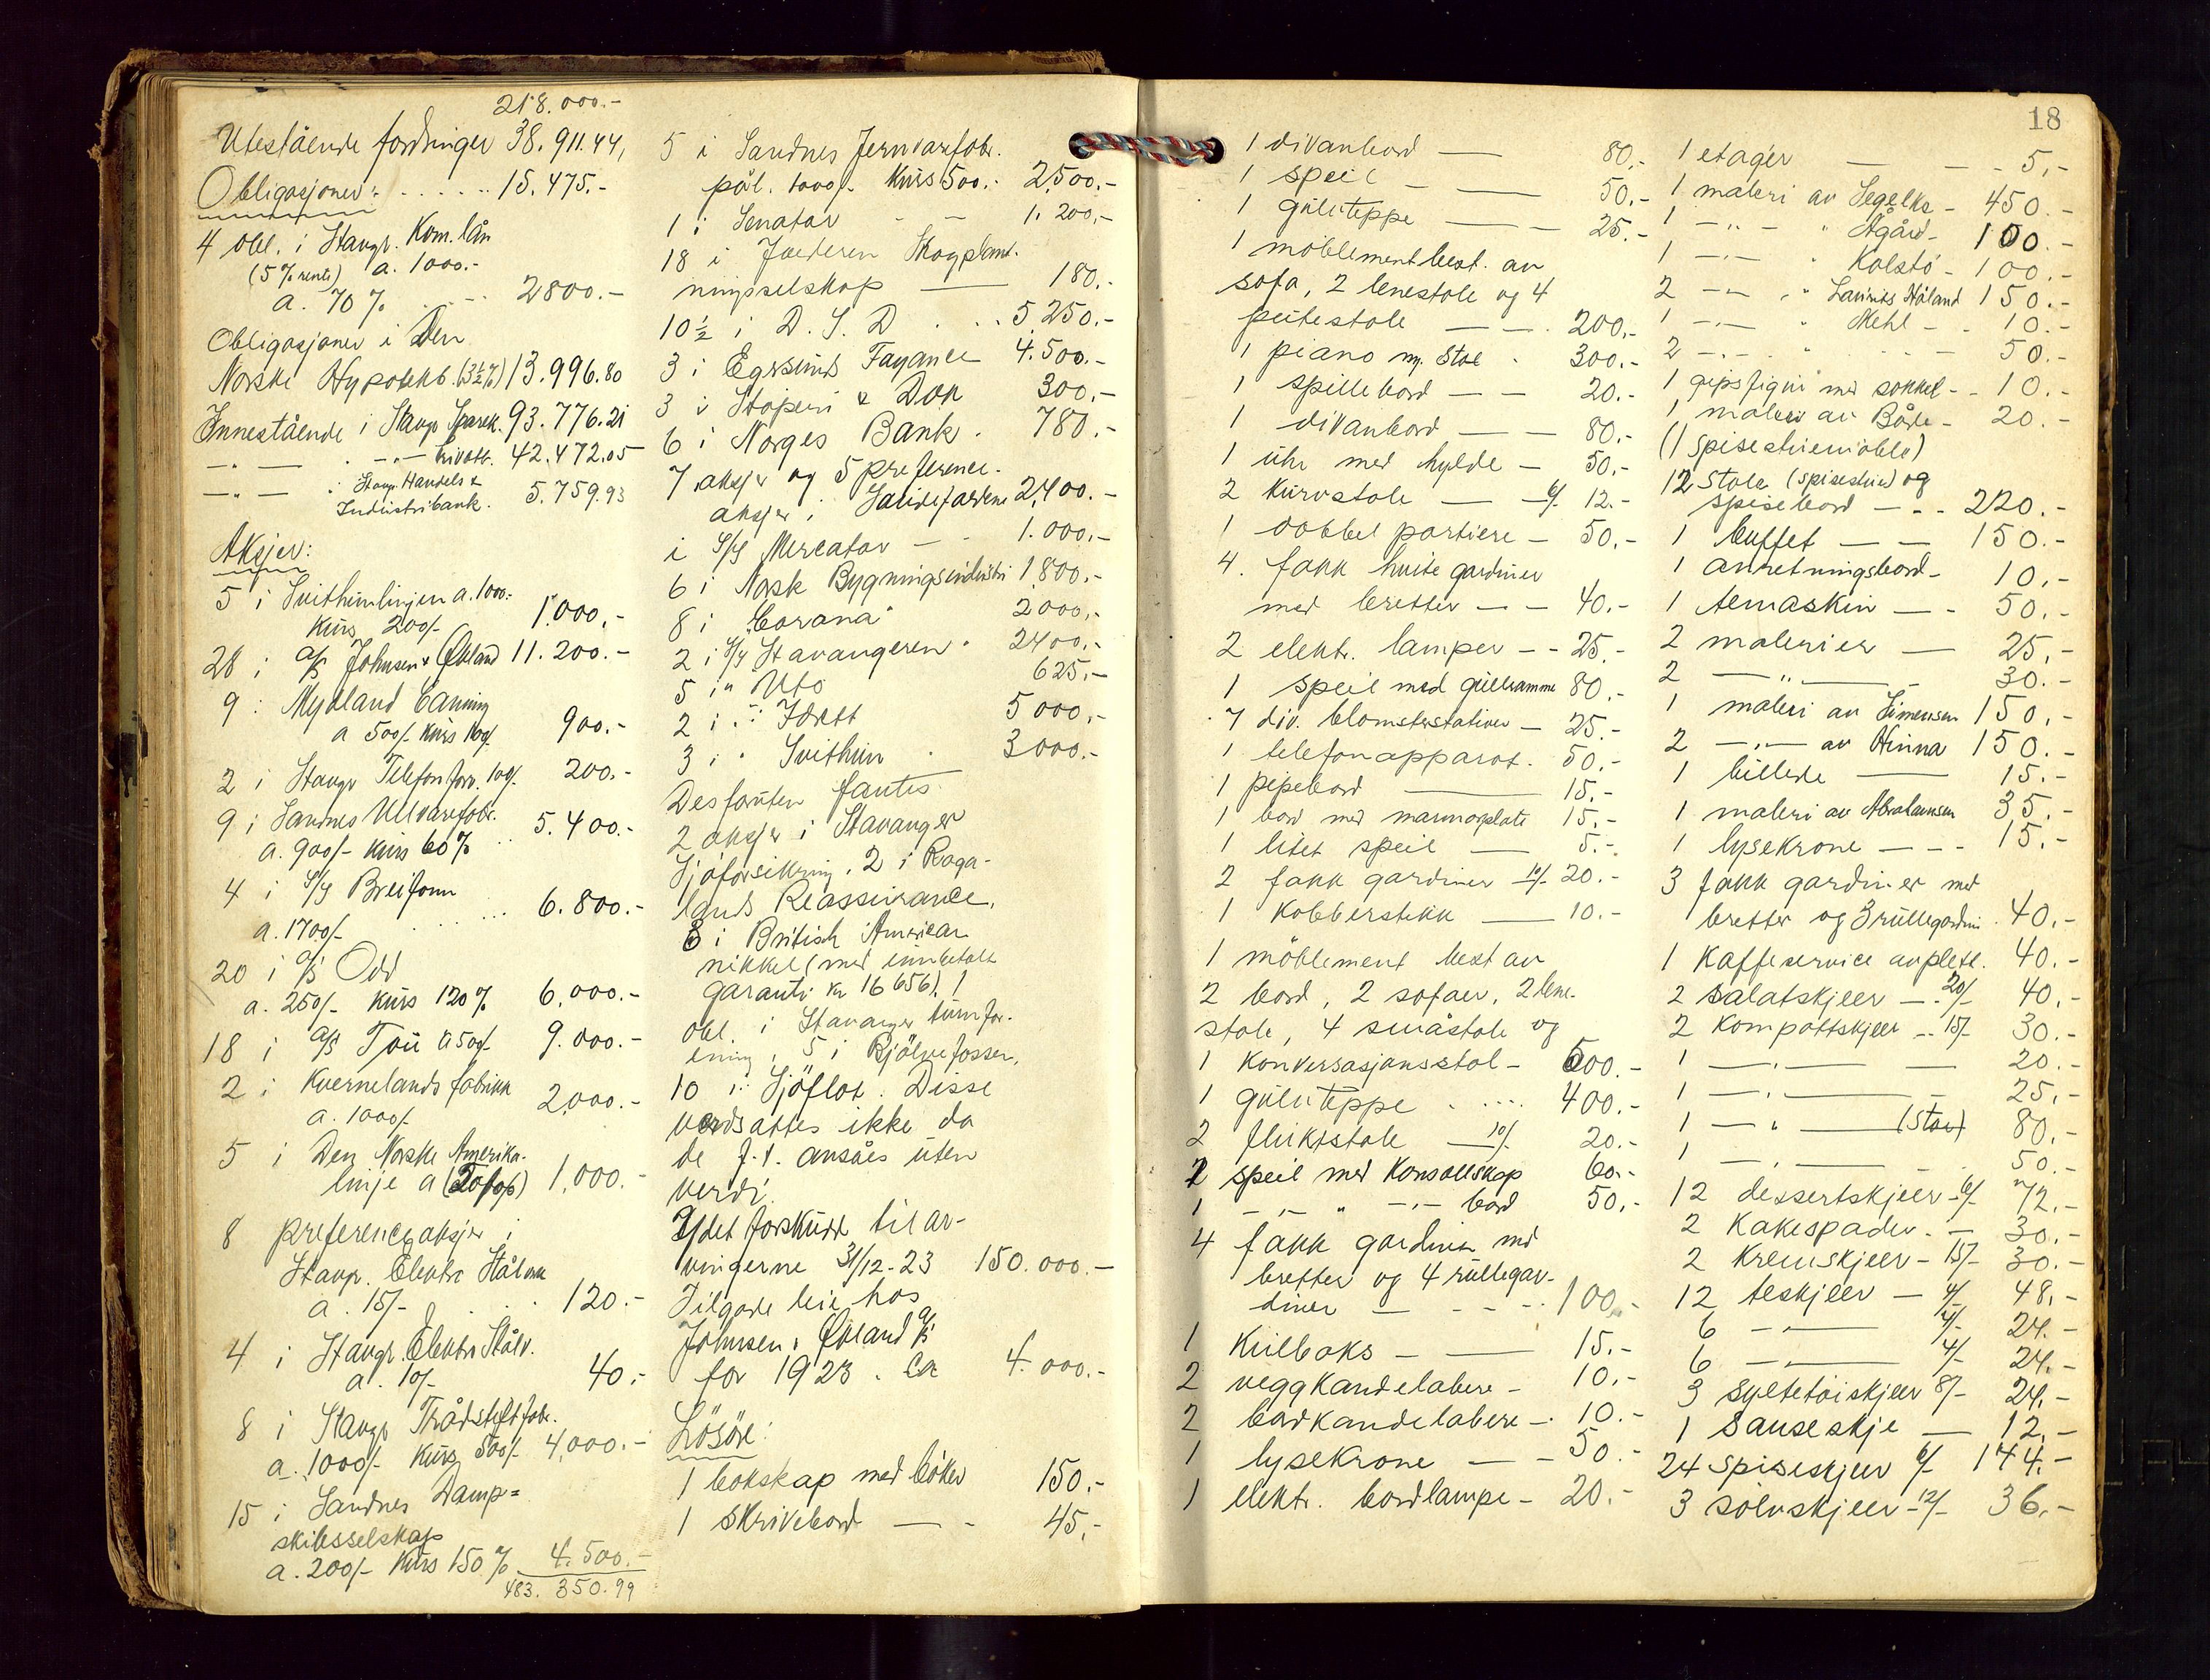 218.000.-
Utestående fordringer 38.911.44,
Obligasjoner: . . . . . 15.475.-
4 obl. i Stavgr. Kom. lån
(5 % rente) a. 1000.-
a. 70 % . . - - 2800.-
Obligasjoner i Den
Norske Hypotekb. (3½%) 13.996.80
Innestående i Stavgr Sparek. 93.776.21
-"- — . -"- Privatb. 42.472.05
-"- — " Stavgr. Handels &
Industribank. 5.759.93
Aksjer:
5 i Svithunlinjen a. 1000.-
Kurs 200/- 1.000.-
28 i A/S Johnsen & Økland 11.200.-
9 : Mydland Caning
a 500/- Kurs 100/- 900.-
2 i Stavgr Telefon forr. 100/- 200.-
9 i Sandnes Uldvarefabr.
a. 900/- Kurs 60 % . . 5.400.-
4 i S/S Breifonn
a. 1700/- . . . . 6.800.-
20 i A/S Odd
a. 250/- Kurs 120 % 6.000.-
18 i A/S Tou a 500/- 9.000.-
2 i Kvernelands fabrikk
a. 1000/- 2000.-
5 i Den Norske Amerika-
linje a 1.000.-
8 preferenceaksjer i
Stavgr. Elektro Stålverk
a. 15/- . . . 120.-
4 i Stavgr. Elektro Stålv.
a. 10/- 40.-
8 i Stavgr Trådstiftfabr.
a. 1000/- Kurs 500/- 4.000.-
15 i Sandnes Damp=
skibsselskap
a. 200/- Kurs 150 % 4.500.-
483.350.99
5 i Sandnes Jernvarefabr.
pål. 1000/- Kurs 500.- 2.500.-
1 i Senator - - 1.200.-
18 i Jæderen Skogplant-
ningsselskap — 180.-
10½ i D. S. D . . . 5.250.-
3 i Egersunds Fayance 4.500.-
3 i Støperi & Dok 300.-
6 i Norges Bank . 780.-
7 aksjer og 5 preference-
aksjer i Sandefjordene 2,400.-
i S/S Mercator - - 1.000.-
6 i Norsk Bygningsindustri 1,800.-
8 i "Corona" 2000.-
2 i S/S Stavangeren . 2400.-
5 i " Uto 625.-
2 i " Idrett 5000.-
3 i " Svithun . 3000.-
Desforuten fantes
2 aksjer i Stavanger
Sjøforsikring, 2 i Roga-
lands Reassurance,
3 i British American
nikkel (med innbetalt
garanti kr 16656), 1
obl. i Stavanger turnfor-
ening, 5 i Bjölvefossen,
10 i Sjöflot. Disse
verdsattes ikke da
de f. t. ansåes uten
verdi.
Ydet forskudd til ar-
vingerne 31/12-23 150.000.-
Tilgode leie hos
Johnsen & Økland A/S
for 1923. Ca 4.000.-
Lösöre:
1 bokskap med böker 150.-
1 skrivebord — - 45.-
18
1 divanbord — 80.-
1 speil — — 50.-
1 gulvteppe — 25.-
1 möblement best. av
sofa, 2 lenestole og 4
puttestole — — . 200.-
1 piano m. stol . 300.-
1 spillebord — — 20.-
1 divanbord — — 80.-
1 uhr med hylde — 50.-
2 kurvstole — 6/- 12.-
1 dobbel portiere — 50.-
4. fakk hvite gardiner
med bretter — — 40.-
2 elektr. lamper — - 25.-
1 speil med gullramme 80.-
7 div. blomsterstativer — 25.-
1 telefonapparat. 50.-
1 pipebord — 15.-
1 bord med marmorplate 15.-
1 litet speil — 5.-
2 fakk gardiner 10/- 20.-
1 Kobberstikk — 10.-
1 möblement best av
2 bord, 2 sofaer, 2 lene-
stole, 4 småstole og
1 konversasjonsstol — 500.-
1 gulvteppe . . . . 400.-
2 fluktstole — 10/- 20.-
1 speil med Konsollskap 60.-
1 -"- " -"- bord 50.-
4 fakk gardiner med
bretter og 4 rullegar-
diner — - - - 100.-
1 Kulboks — — 15.-
2 veggkandelabere — 10.-
2 bordkandelabere — 10.-
1 lysekrone — — 50.-
1 elektr. bordlampe — 20.-
1 etagér — — 5.-
1 maleri av Segelke — 450.-
1 -"- " Ågård — 100.-
1 -"- " Kolstö — 100.-
2 -"- " Laurits Håland 150.-
1 -"- " Mehl — . 10.-
2 -"- " - - - 50.-
1 gipsfigur med sokkel — 10.-
1 maleri av Bårde — 20.-
(1 spisestuemöble)
12 stole (spisestue) og
spisebord — - - 220.-
1 buffet — — 150.-
1 anretningsbord — 10.-
1 temaskin — - 50.-
2 malerier — 25.-
2 — " — 30.-
1 maleri av Simensen 150.-
2 -"- av Hinna 150.-
1 billede — 15.-
1 maleri av Abrahamsen 35.-
1 lysekrone — - - 15.-
3 fakk gardiner med
bretter og 3 rullegardin. 40.-
1 Kaffeservice av plett. 40.-
2 salatskjeer — 20/- 40.-
2 kompottskjeer — 15/- 30.-
1 — " — 20.-
1 — " — 25.-
1 — " — (stor) 80.-
1 — " — 50.-
12 dessertskjeer 6/- 72.-
2 Kakespader . — 30.-
2 Kremskjeer — 15/- 30.-
12 teskjeer — 4/- 48.-
6 — " — 4/- 24.-
6 — " — 4/- 24.-
3 syltetöiskjeer 8/- 24.-
1 sauseskje — 12.-
24 spiseskjeer 6/- 144.-
3 sölvskjeer 12/- 36.-